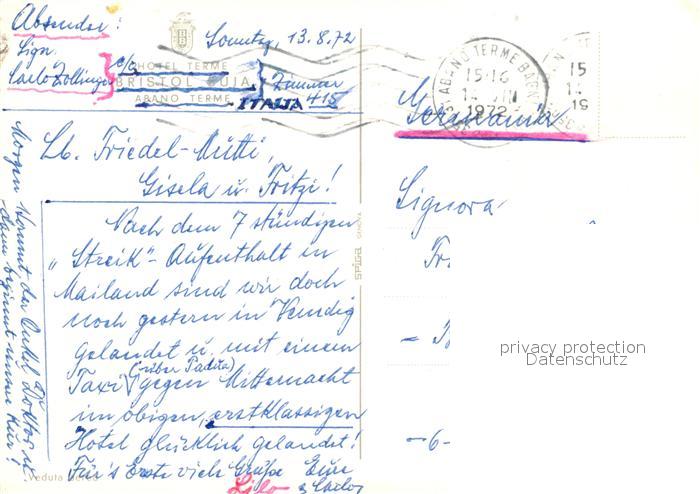 Absender:
Sign.
Carlo Zollinger
c/o
HOTEL TERME
BRISTOL BUJA
ABANO TERME
ITALIA
Zimmer
415
Sonntag, 13.8.72
ABANO TERME BAGNI
15-16
1972
15
14
19
Germania
Lb. Friedel-Mutti,
Gisela u. Fritzi!
Nach dem 7 stündigen
"Streik"-Aufenthalt in
Mailand sind wir doch
noch gestern in Venedig
gelandet u. mit einem
Taxi (über Padua) gegen Mitternacht
im obigen, erstklassigen
Hotel glücklich gelandet!
Für's Erste viele Grüße Eure
& Carlo
Morgen kommt der
dann beginnt unsere Kur!
Signora
Fr.
-6-
SPIGA GENOVA
Veduta aerea
privacy protection
Datenschutz